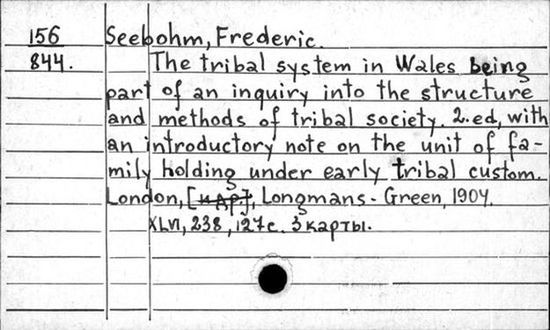 156 Seebohm, Frederic.
844. The tribal system in Wales being
part of an inquiry into the structure
and methods of tribal society. 2.ed, with
an introductory note on the unit of fa-
mily holding under early tribal custom.
London, [и др.], Longmans-Green, 1904.
XLVI, 238, 127 с. 3 карты.